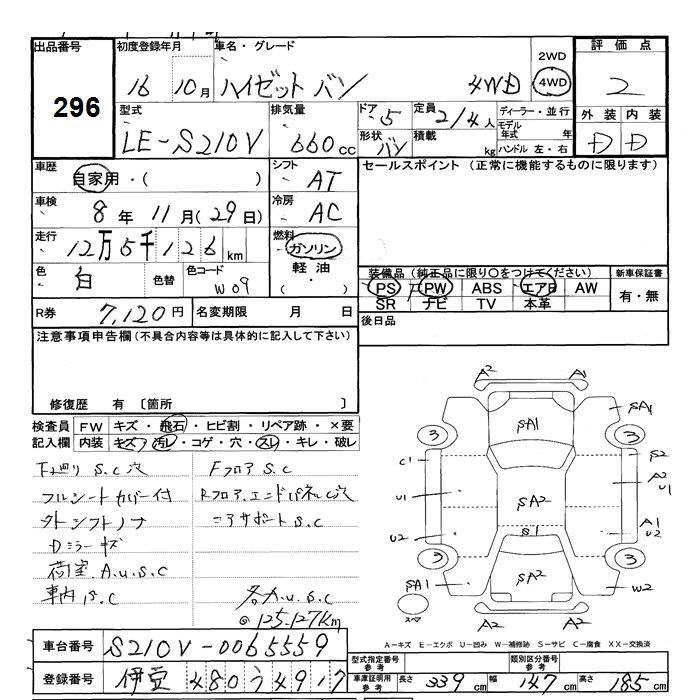 出品番号 初度登録年月 車名・グレード 2WD 評価点
296 16 10月 ハイゼット バン 4WD 4WD 2
型式 排気量 ドア 定員 ディーラー・並行 外装 内装
LE-S210V 660cc 5 2/4人 モデル年式 年 D D
形状 バン 積載 kg ハンドル 左・右
車歴 自家用・( ) シフト AT セールスポイント (正常に機能するものに限ります)
車検 8年 11月(29日) 冷房 AC
走行 12万5千126km 燃料 ガソリン
色 白 色替 色コード W09 軽油 ・( )
装備品(純正品に限り○をつけてください) 新車保証書
PS PW ABS エアB AW 有・無
SR ナビ TV 本革
R券 7,120円 名変期限 月 日 後日品
注意事項申告欄(不具合内容等は具体的に記入して下さい)
修復歴 有 〔箇所 〕
検査員 FW キズ・飛石・ヒビ割・リペア跡・×要
記入欄 内装 キズ・汚レ・コゲ・穴・スレ・キレ・破レ
下廻り S.C穴 Fフロア S.C
フルシートカバー付 Rフロア.エンドパネルC穴
タトシフトノブ コアサポートS.C
Dミラーキズ
荷室.A.U.S.C
車内 S.C 各A.U.S.C
@125.127km
A2 A1
SA1 SA1
3 3
C1 S2
A2
U1 SA2 U1
A1
U2 S1 U2
3 3
SA1 SA2 W2
スペア A2 A2
A-キズ E-エクボ U-凹み W-補修跡 S-サビ C-腐食 XX-交換済
車台番号 S210V-0065559
型式指定番号 参考 類別区分番号 参考
登録番号 伊豆 480う4917 車庫証明用 参考 長さ 339cm 幅 147cm 高さ 185cm